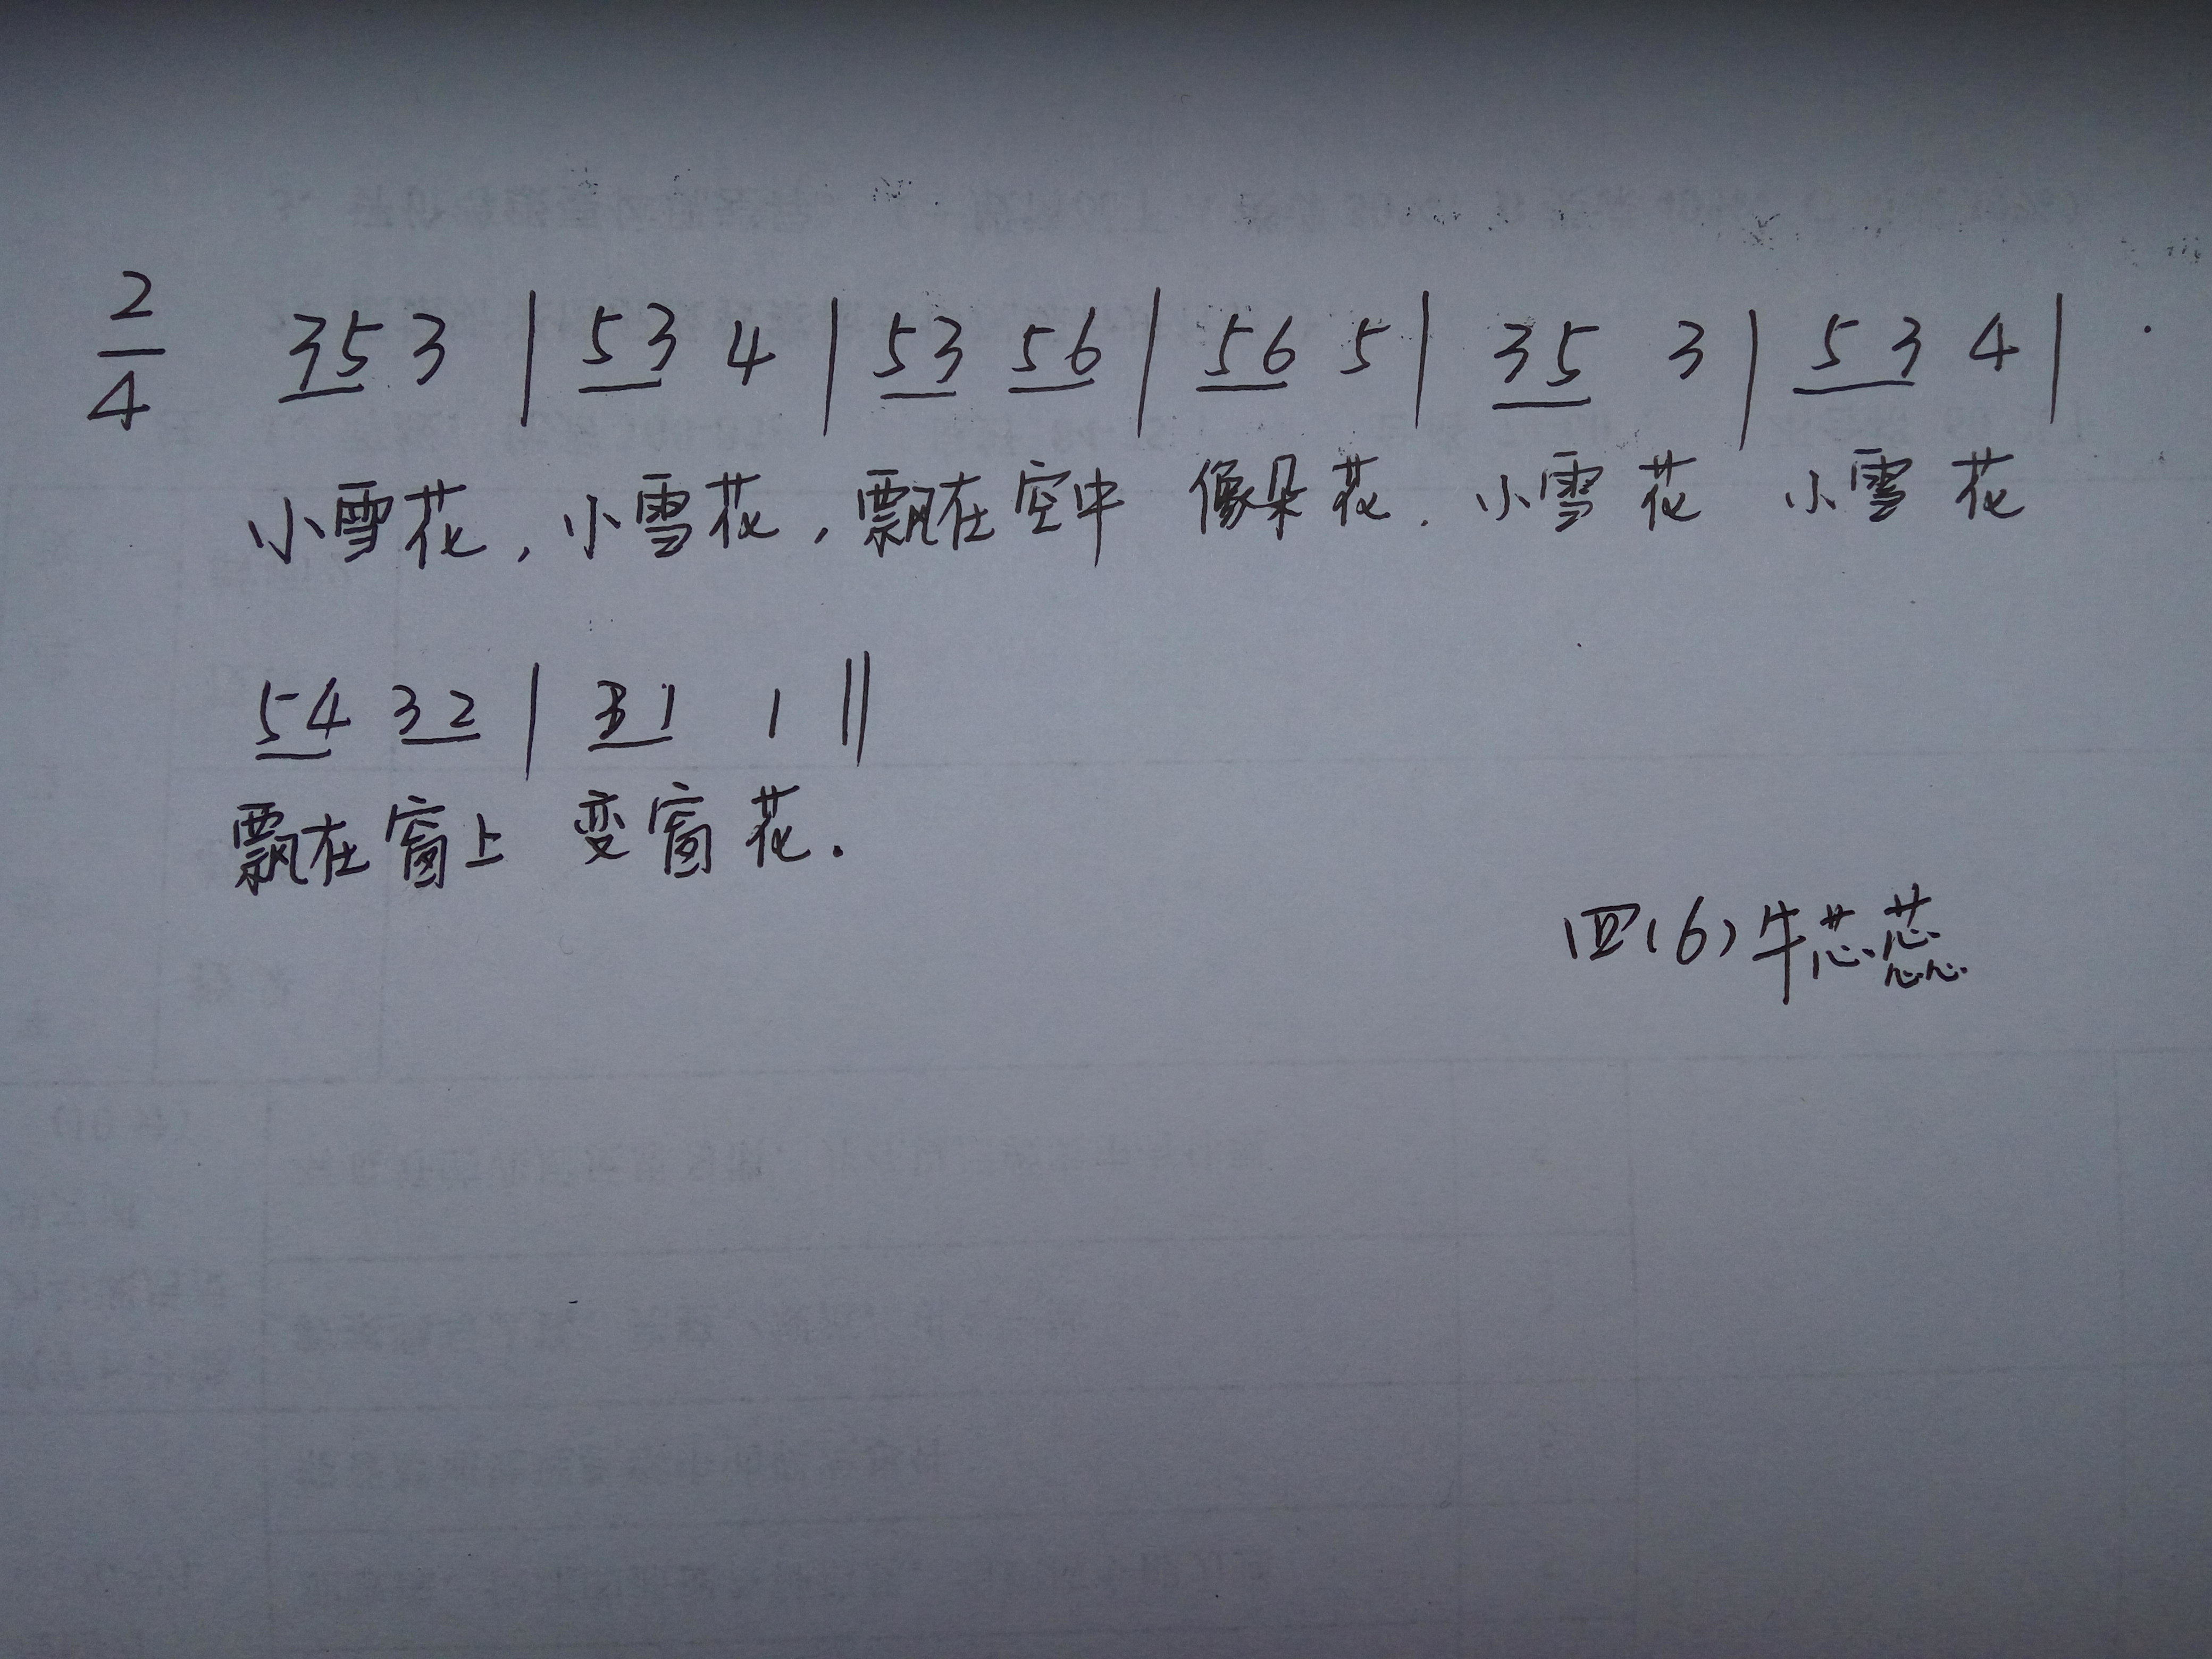 2/4 35 3 | 53 4 | 53 56 | 56 5 | 35 3 | 53 4 |
小雪花，小雪花，飘在空中 像朵花．小雪花 小雪花
54 32 | 31 1 ||
飘在窗上 变窗花．
四(6)牛芯蕊